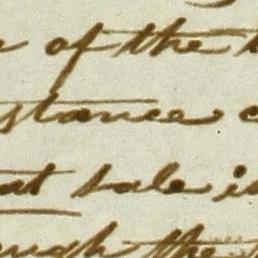 of the
stance
at sale is
ough the